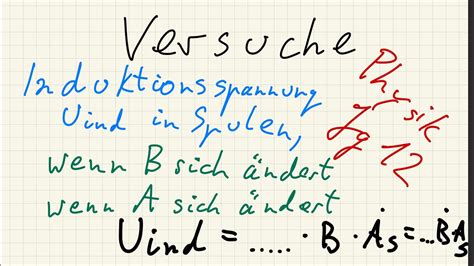 Versuche
Induktionsspannung
Uind in Spulen,
wenn B sich ändert
wenn A sich ändert
Physik
Jg 12
Uind = ..... · B · Ȧs = ... Ḃ As